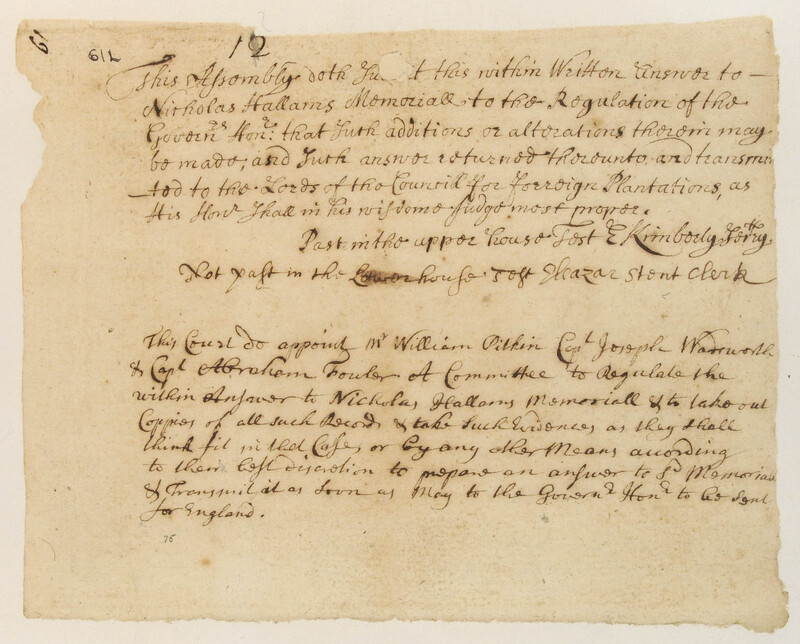 61L
12
This Assembly doth this within Written Answer to –
Nicholas Hallams Memoriall to the Regulation of the
Governrs Honr: that Such additions or alterations therein may
be made, and Such answer returned thereunto, and transmi
–ted to the Lords of the Council for forreign Plantations, as
His Honr Shall in his wisdome Judge most proper.
Past in the upper house Test E Kimberly Secrtry
Not past in the Lower house Test Eleazar Stent Clerk
This Court do appoint Mr William Pitkin Capt Joseph Wadsworth
& Capt Abraham Fowler A Committee to Regulate the
within Answer to Nicholas Hallams Memoriall & to take out
Coppies of all such Records & take Such Evidences as they shall
think fit in that Case, or by any other Means according
to their best discretion to prepare an answer to Sd Memoriall
& Transmit it as soon as May to the Governrs Honr to be Sent
for England.
76